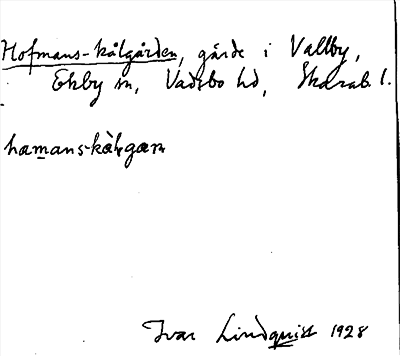 Hofmans-kålgården, gärde i Vallby,
Ekby sn, Vadsbo hd, Skarab. l.
hamans-kàlgæṇ
Ivar Lindquist 1928